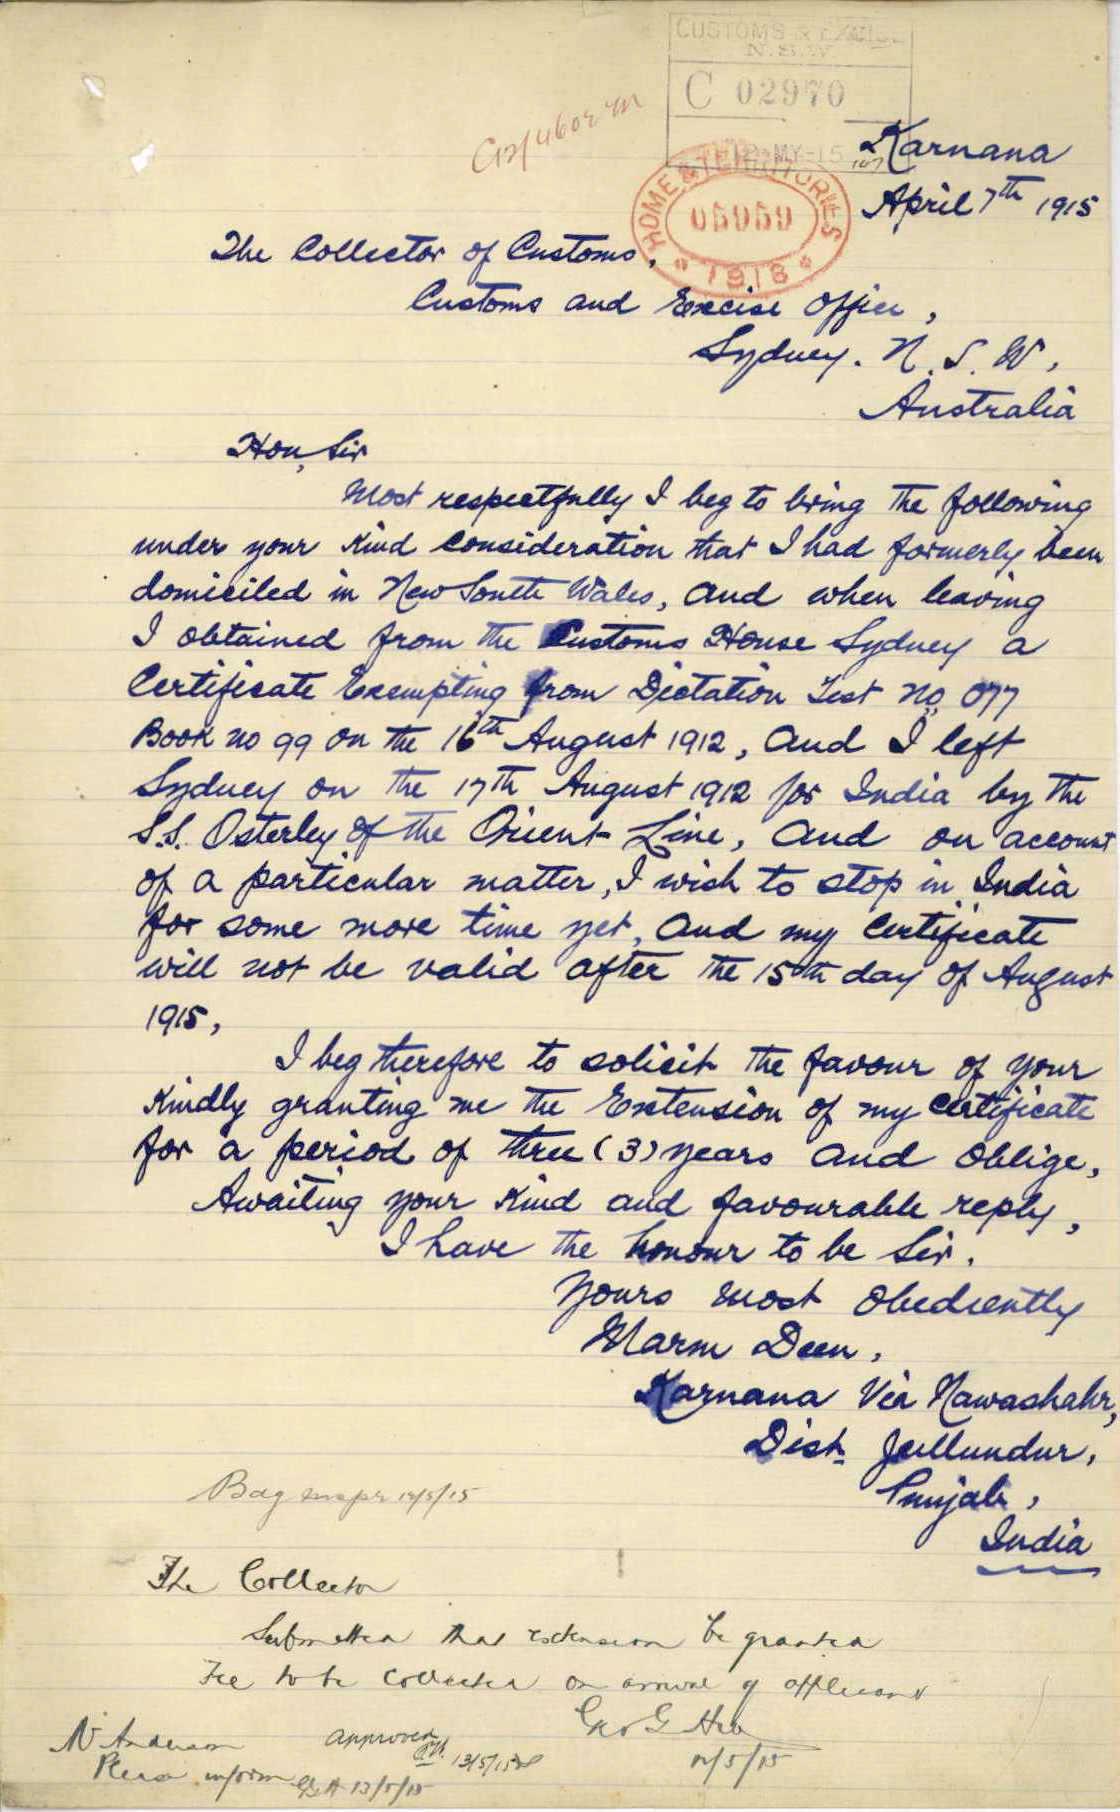 CUSTOMS & EXCISE
N.S.W.
C 02970
MY-15
HOME & TERRITORIES
05959
1918
Karnana
April 7th 1915
The Collector of Customs,
Customs and Excise Office,
Sydney. N. S. W,
Australia
Hon, Sir
Most respectfully I beg to bring the following
under your kind consideration that I had formerly been
domiciled in New South Wales, and when leaving
I obtained from the Customs House Sydney a
Certificate Exempting from Dictation Test No, 077
Book no 99 on the 16th August 1912, and I left
Sydney on the 17th August 1912 for India by the
S.S. Osterley of the Orient Line, and on account
of a particular matter, I wish to stop in India
for some more time yet, and my Certificate
will not be valid after the 15th day of August
1915,
I beg therefore to solicit the favour of your
kindly granting me the Extension of my certificate
for a period of three (3) years and oblige,
Awaiting your kind and favourable reply,
I have the honour to be Sir.
Yours most obediently
Marm Deen,
Karnana Via Nawashahr,
Dist. Jullundur,
Punjab,
India
Bag 12/5/15
The Collector
Submitted that extension be granted
Fee to be collected on arrival of applicant
Geo G
12/5/15
Mr Anderson
approved
13/5/15
Please inform
13/5/15